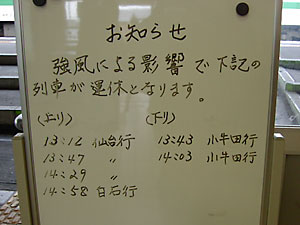 お知らせ
強風による影響で下記の
列車が運休となります。
(上り) (下り)
13:12 仙台行 13:43 小牛田行
13:47 〃 14:03 小牛田行
14:29 〃
14:58 白石行